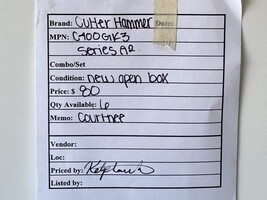 Brand: Cutler Hammer Date:
MPN: C400GK3
Series A2
Combo/Set
Condition: new open box
Price: $ 80
Qty Available: 6
Memo: Courtnee
Vendor:
Loc:
Priced by:
Listed by: